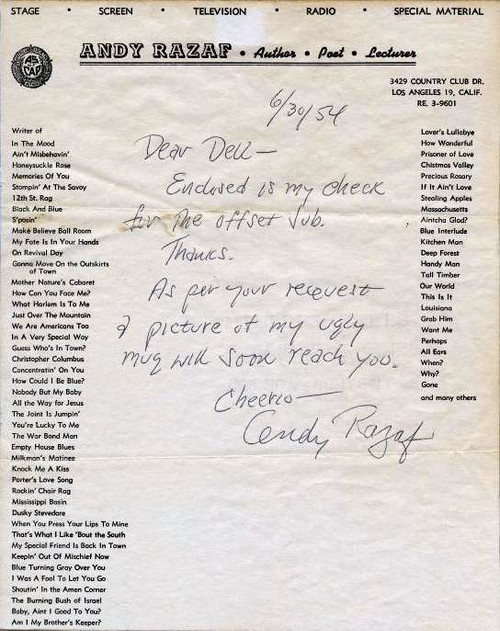 STAGE • SCREEN • TELEVISION • RADIO • SPECIAL MATERIAL
ANDY RAZAF • Author • Poet • Lecturer
3429 COUNTRY CLUB DR.
LOS ANGELES 19, CALIF.
RE. 3-9601
6/30/54
Dear Dell—
Enclosed is my check
for the offset Job.
Thanks.
As per your request
a picture of my ugly
mug will soon reach you.
Cheerio—
Andy Razaf
Writer of
In The Mood
Ain't Misbehavin'
Honeysuckle Rose
Memories Of You
Stompin' At The Savoy
12th St. Rag
Black And Blue
S'posin'
Make Believe Ball Room
My Fate Is In Your Hands
On Revival Day
Gonna Move On the Outskirts
of Town
Mother Nature's Cabaret
How Can You Face Me?
What Harlem Is To Me
Just Over The Mountain
We Are Americans Too
In A Very Special Way
Guess Who's In Town?
Christopher Columbus
Concentratin' On You
How Could I Be Blue?
Nobody But My Baby
All the Way for Jesus
The Joint Is Jumpin'
You're Lucky To Me
The War Bond Man
Empty House Blues
Milkman's Matinee
Knock Me A Kiss
Porter's Love Song
Rockin' Chair Rag
Mississippi Basin
Dusky Stevedore
When You Press Your Lips To Mine
That's What I Like 'Bout the South
My Special Friend Is Back In Town
Keepin' Out Of Mischief Now
Blue Turning Gray Over You
I Was A Fool To Let You Go
Shoutin' In the Amen Corner
The Burning Bush of Israel
Baby, Ain't I Good To You?
Am I My Brother's Keeper?
Lover's Lullabye
How Wonderful
Prisoner of Love
Chistmas Valley
Precious Rosary
If It Ain't Love
Stealing Apples
Massachusetts
Aintcha Glad?
Blue Interlude
Kitchen Man
Deep Forest
Handy Man
Tall Timber
Our World
This Is It
Louisiana
Grab Him
Want Me
Perhaps
All Ears
When?
Why?
Gone
and many others